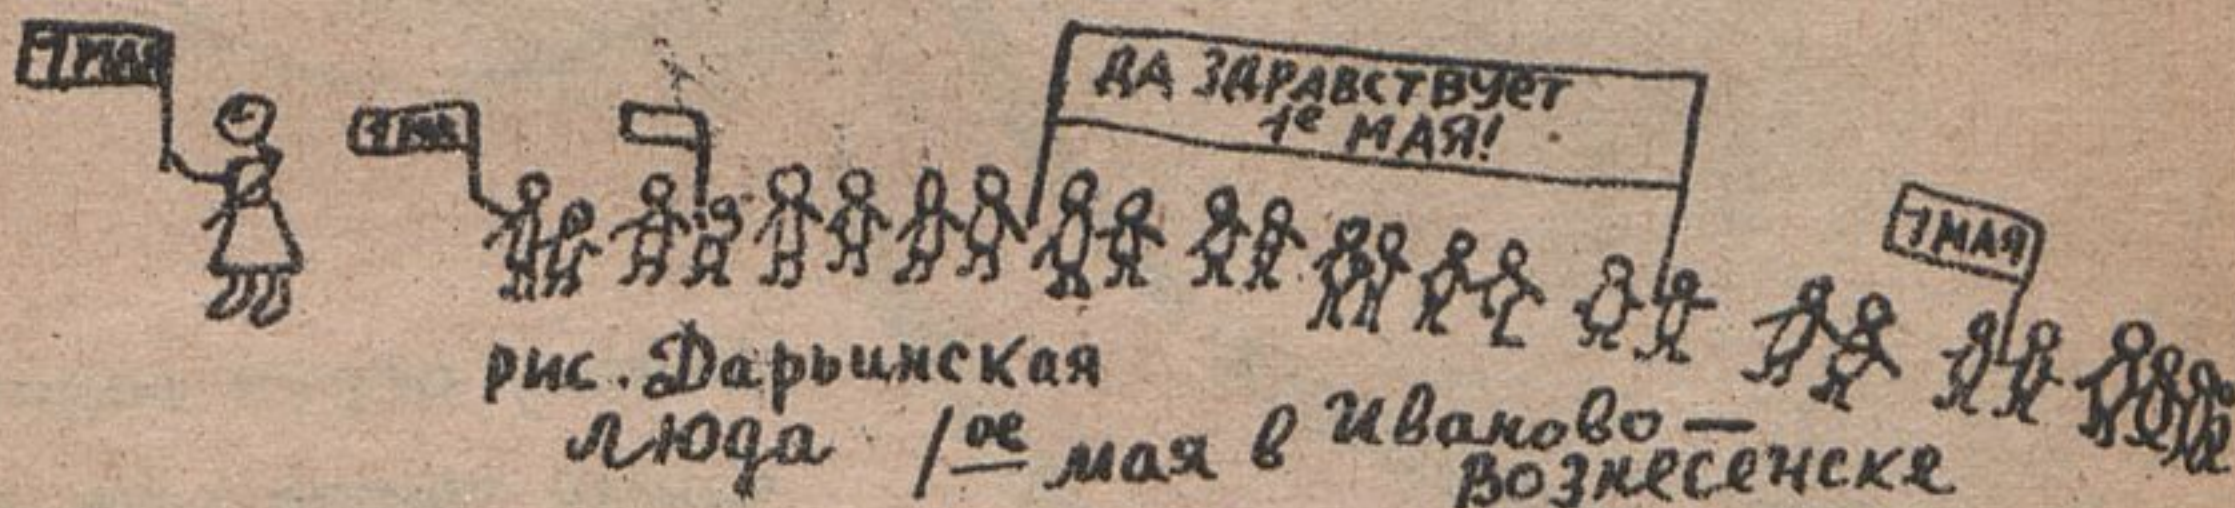 1 МАЯ
1 МАЯ
ДА ЗДРАВСТВУЕТ
1е МАЯ!
1 МАЯ
рис. Дарьинская
Люда 1ое мая в Иваново—
Вознесенске